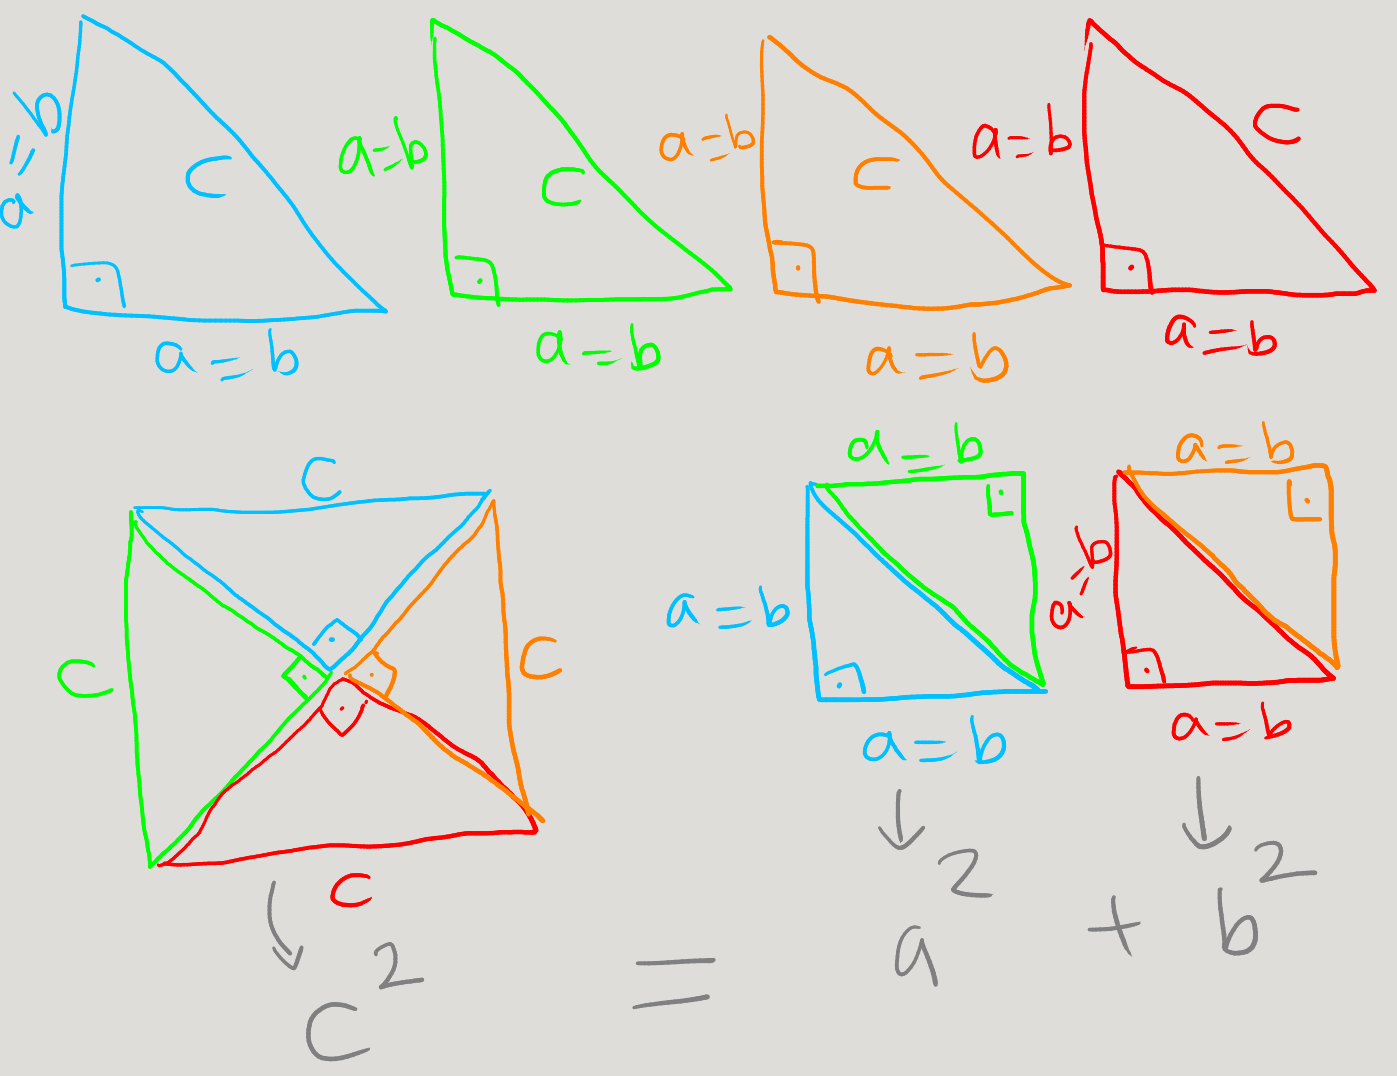 a=b
C
a=b
a=b
C
a=b
a=b
C
a=b
a=b
C
a=b
C
C
C
C
a=b
a=b
a=b
a=b
a=b
a=b
c² = a² + b²